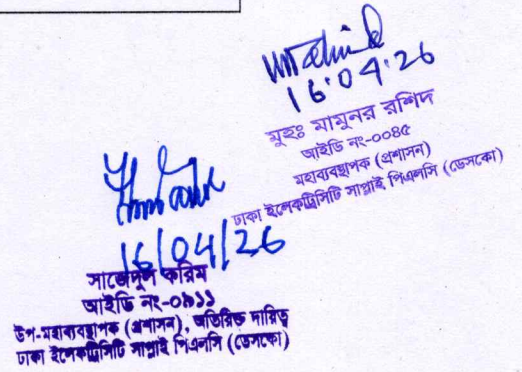 16.04.26
মুহঃ মামুনর রশিদ
আইডি নং-০০৪৫
মহাব্যবস্থাপক (প্রশাসন)
ঢাকা ইলেকট্রিসিটি সাপ্লাই পিএলসি (ডেসকো)
16/04/26
সাজেদুল করিম
আইডি নং-০৯১১
উপ-মহাব্যবস্থাপক (প্রশাসন), অতিরিক্ত দায়িত্ব
ঢাকা ইলেকট্রিসিটি সাপ্লাই পিএলসি (ডেসকো)